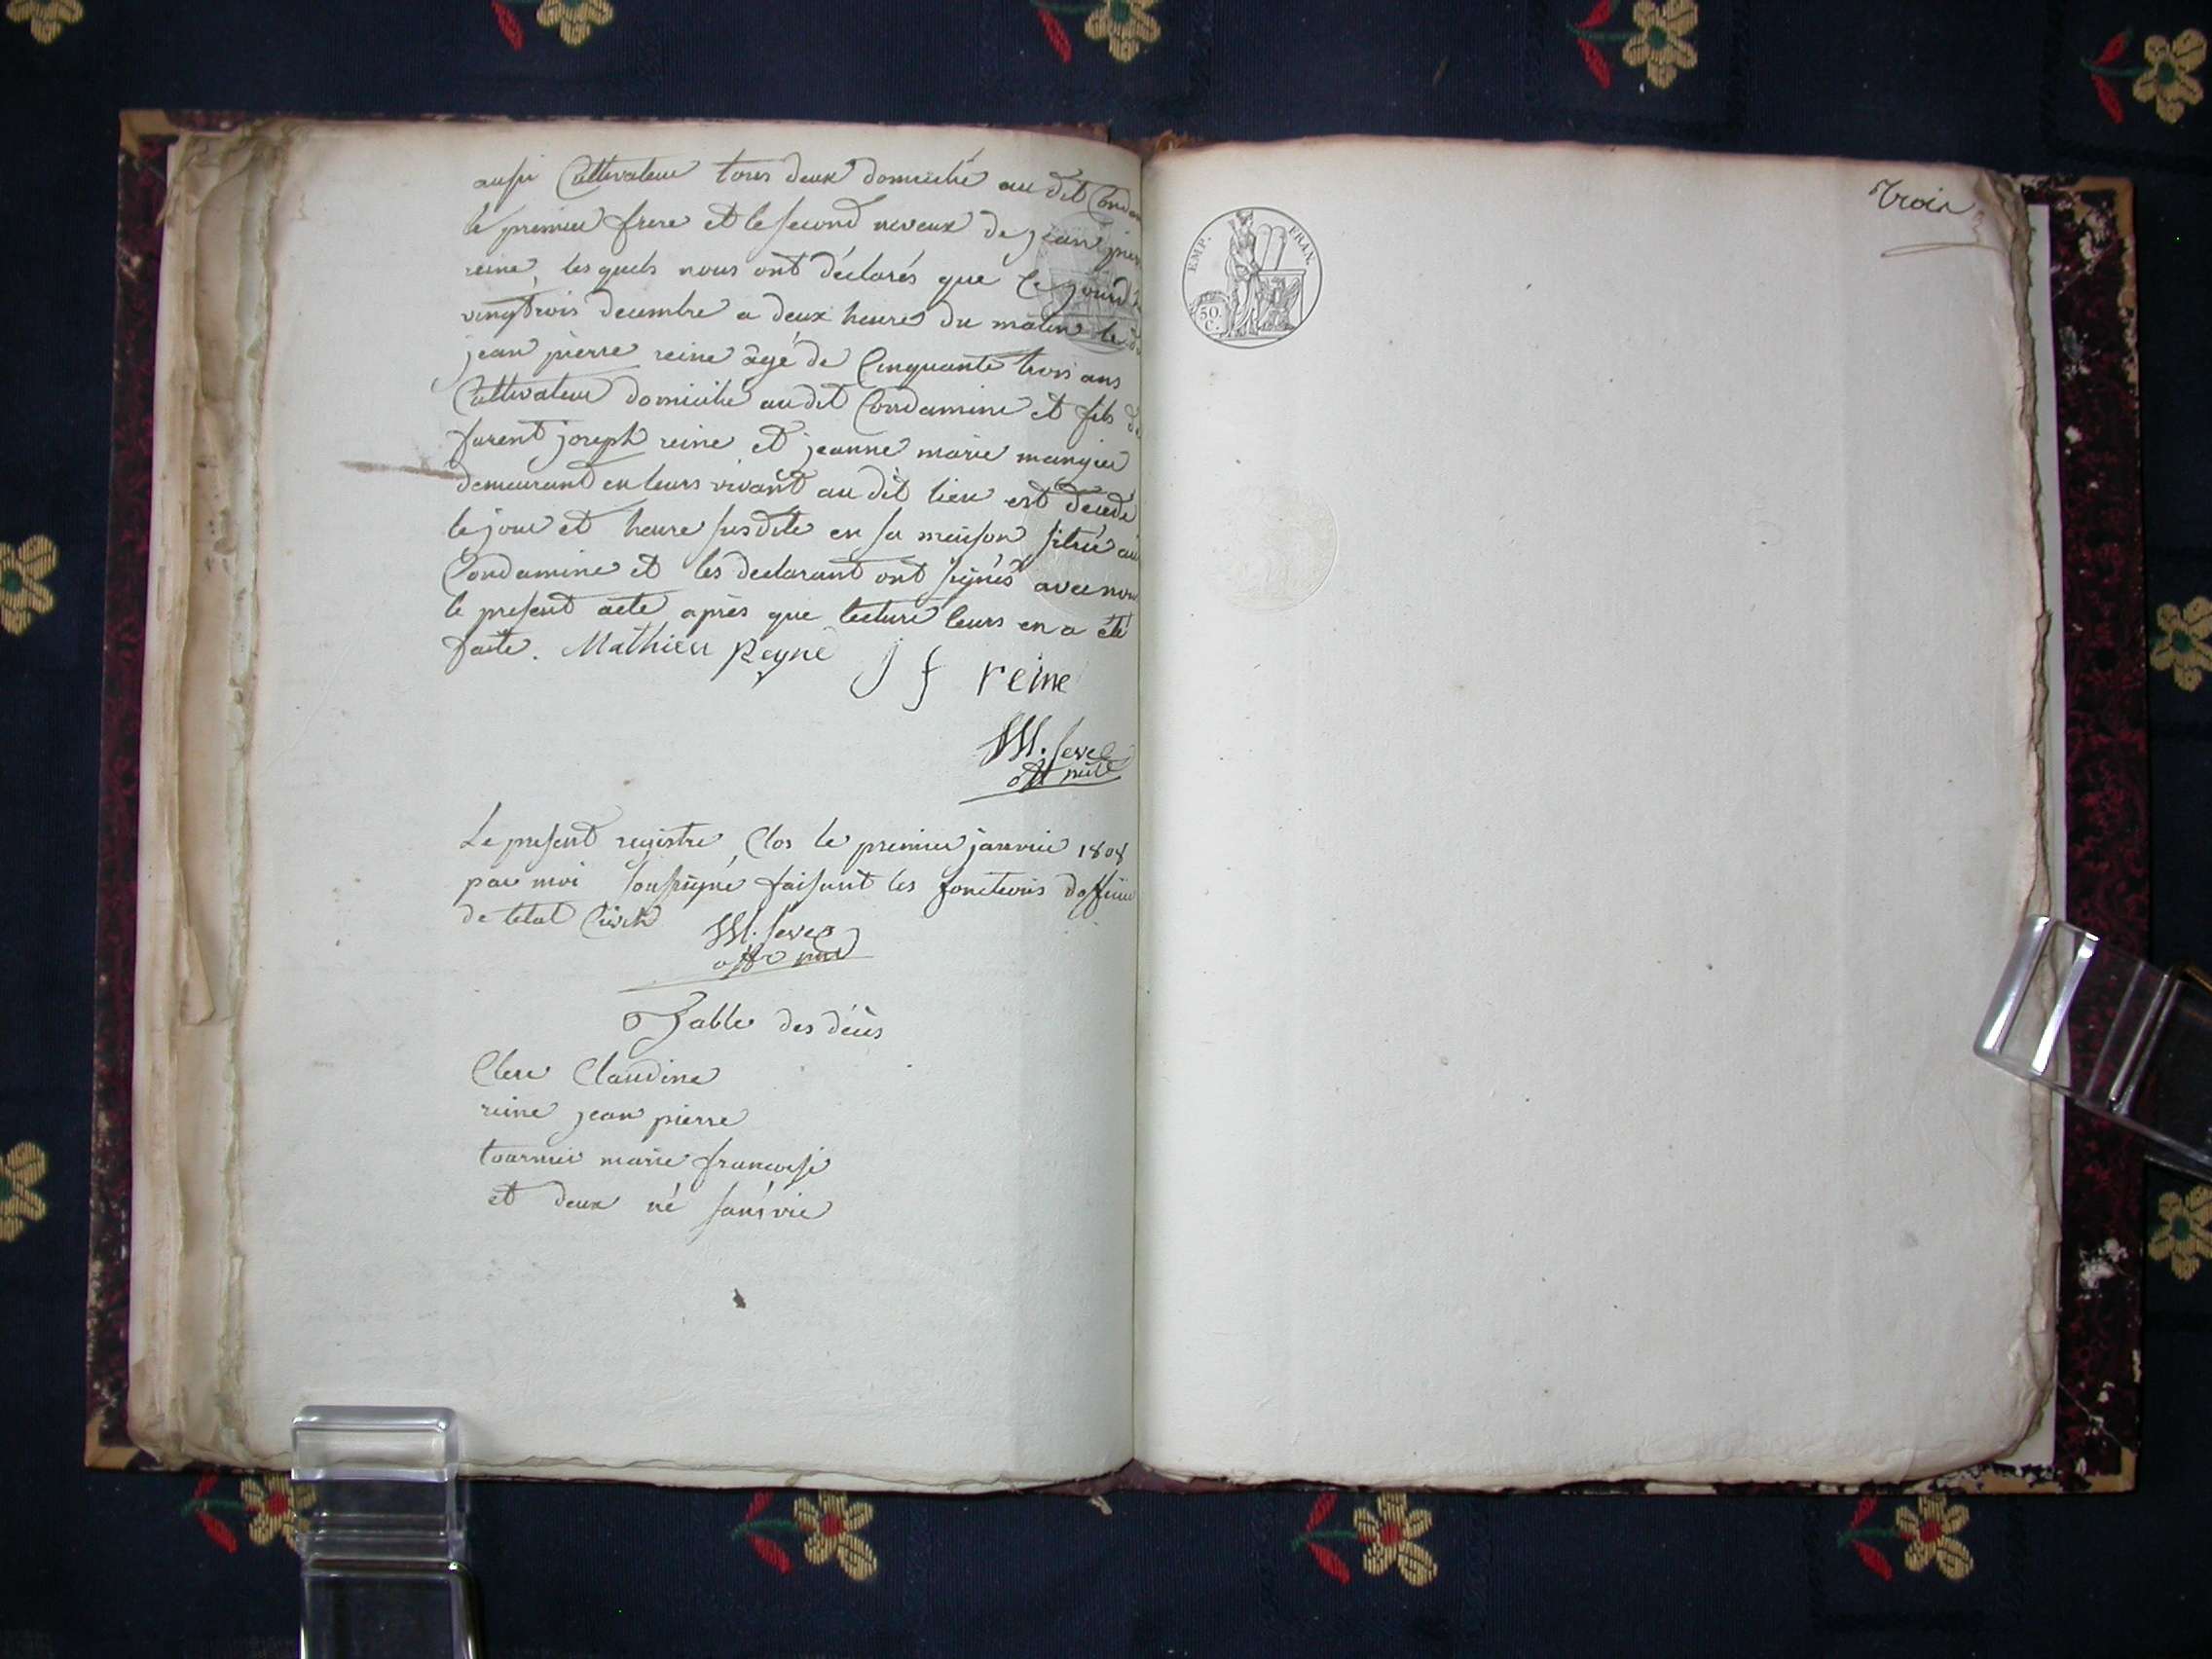 aussi Cultivateur tous deux domicilié au dit Condam
le premier frere et le second neveux de jean pier
reine, les quels nous ont déclarés que Ce jourd
vingtrois decembre a deux heure du matin le d
jean pierre reine âgé de Cinquante trois ans
Cultivateur domicilié audit Condamine et fils de
furent joseph reine et jeanne marie mangier
demeurant en leurs vivant au dit lieu est décédé
le jour et heure susdite en sa maison sitüé au
Condamine et les declarant ont signés avec nous
le present acte après que lecture leurs en a été
faite. Mathieu Reyne j f reine
M.
Le present registre Clos le premier janvier 1808
par moi soussigné faisant les fonctions d'officier
de letat Civil
M.
Table des décès
Clerc Claudine
reine jean pierre
tournier marie francoise
et deux né sans vie
Trois
EMP. FRAN.
50.
C.